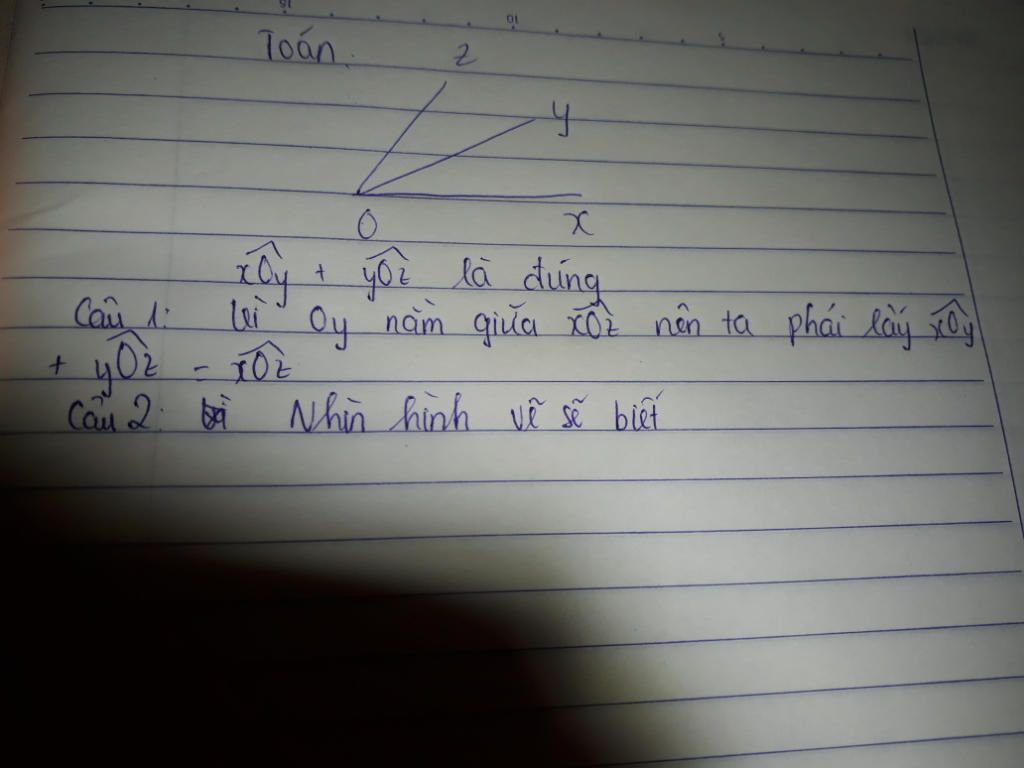 Toán.
z
y
O
x
x͡Oy + y͡Oz là đúng
Câu 1: Vì Oy nằm giữa x͡Oz nên ta phải lấy x͡Oy
+ y͡Oz = x͡Oz
Câu 2: Nhìn hình vẽ sẽ biết